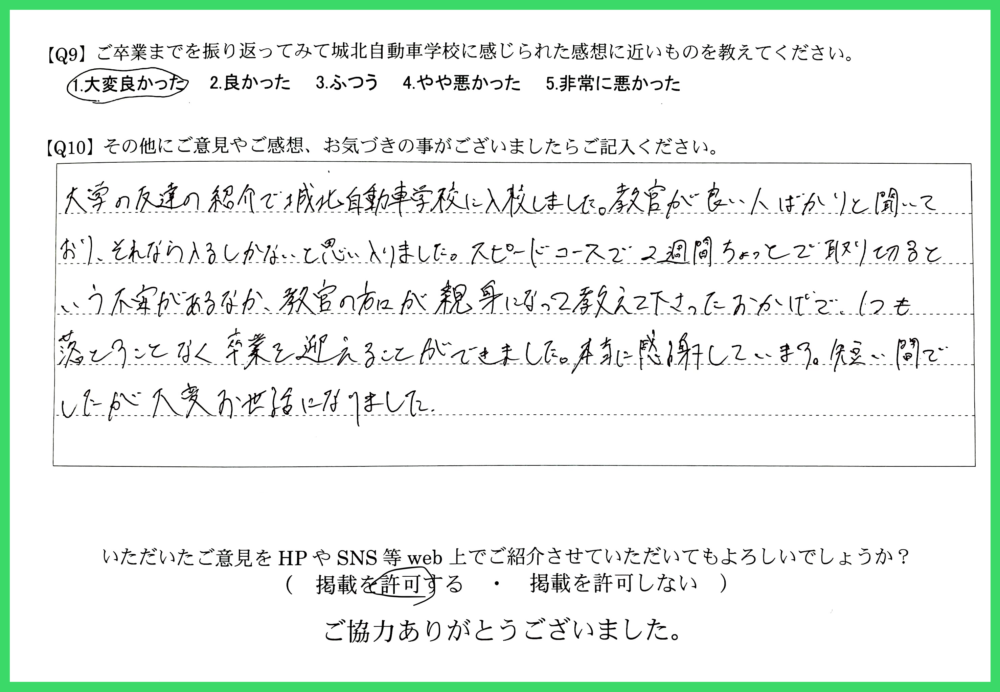 【Q9】ご卒業までを振り返ってみて城北自動車学校に感じられた感想に近いものを教えてください。
1.大変良かった 2.良かった 3.ふつう 4.やや悪かった 5.非常に悪かった
【Q10】その他にご意見やご感想、お気づきの事がございましたらご記入ください。
大学の友達の紹介で城北自動車学校に入校しました。教官が良い人ばかりと聞いて
おり、それなら入るしかないと思い入りました。スピードコースで2週間ちょっとで取り切ると
いう不安があるなか、教官の方々が親身になって教えて下さったおかげで、1つも
落とすことなく卒業を迎えることができました。本当に感謝しています。短い間で
したが大変お世話になりました.
いただいたご意見をHPやSNS等web上でご紹介させていただいてもよろしいでしょうか？
（ 掲載を許可する ・ 掲載を許可しない ）
ご協力ありがとうございました。